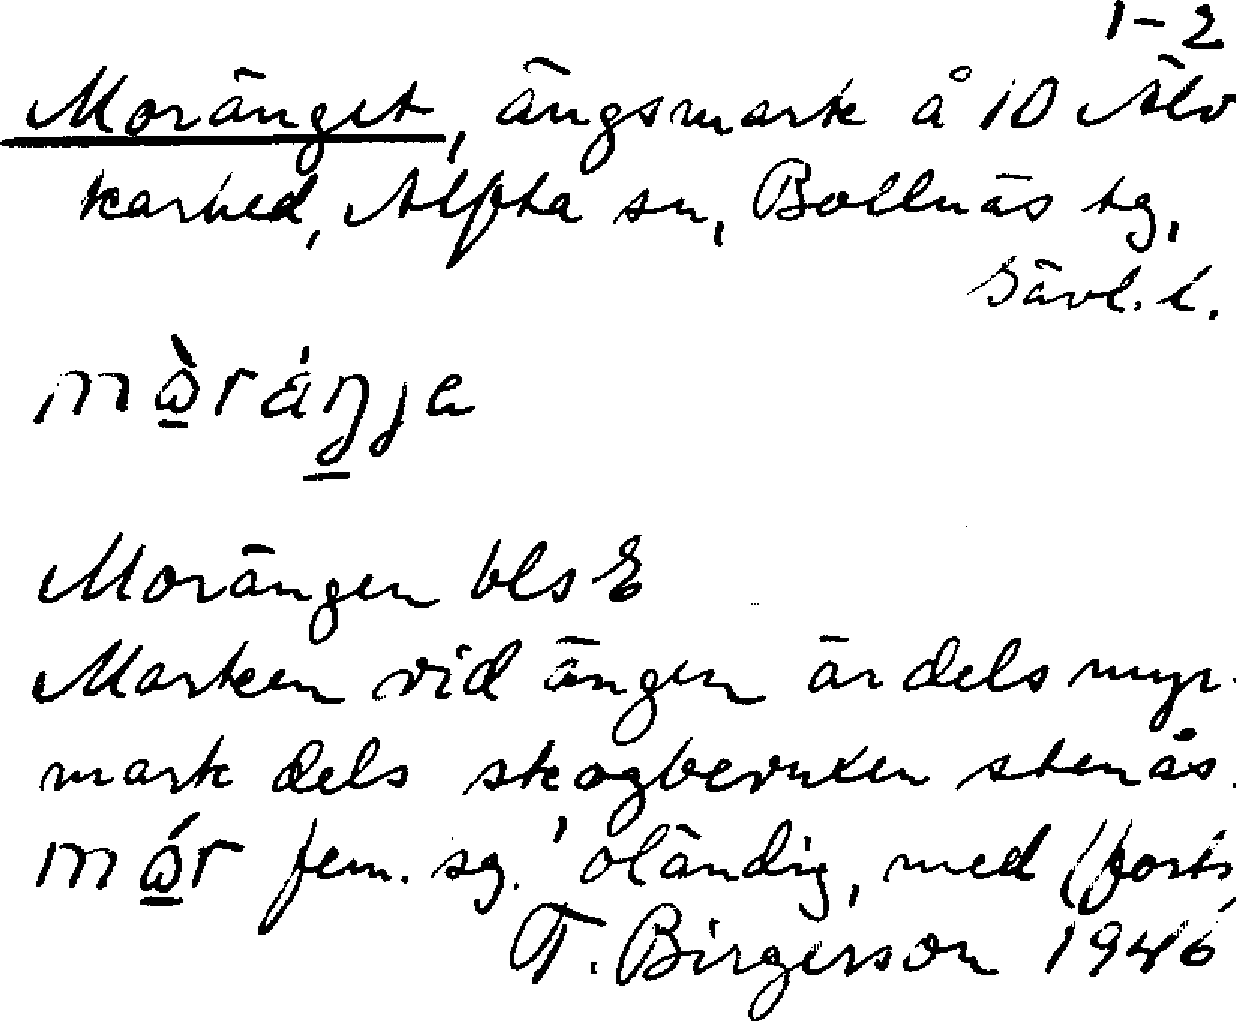 1-2
Moränget, ängsmark å 10 Älv
karhed, Alfta sn, Bollnäs tg,
Gävl. l.
Morängen bls E
Marken vid ängen är dels myr-
mark dels skogbevuxen stenås.
fem. sg. 'oländig, med (forts
T. Birgerson 1946